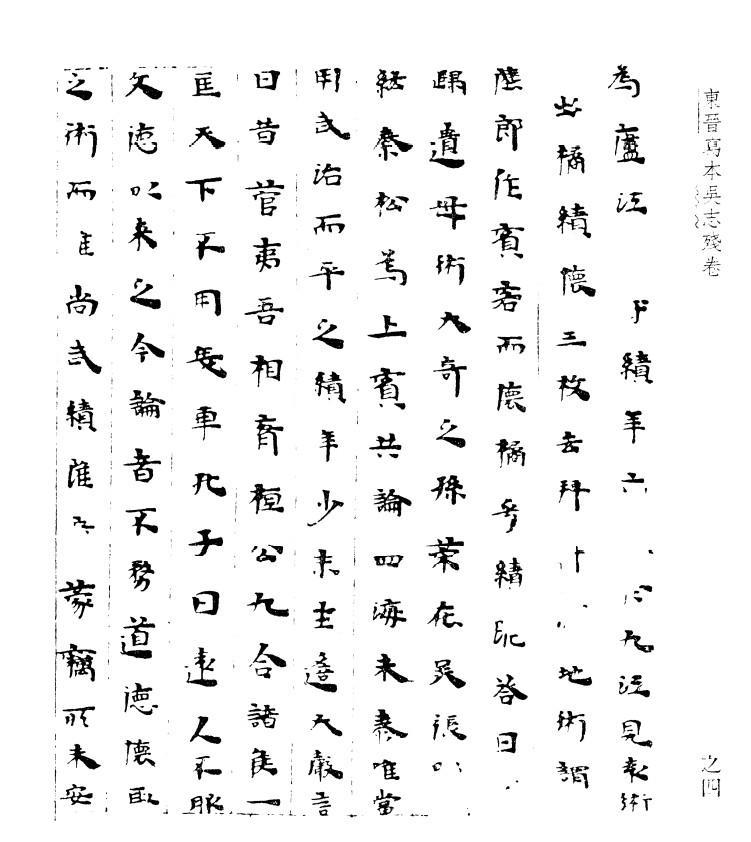 東晉寫本吳志殘卷
為廬江 績年六 於九江見袁術
出橘績懷三枚去拜 地術謂
陸郎作賓客而懷橘乎績跪答曰
歸遺母術大奇之孫策在吳張
紘秦松為上賓共論四海未泰唯當
用武治而平之績年少末坐遙大聲言
曰昔菅夷吾相齊桓公九合諸侯一
匡天下不用兵車孔子曰遠人不服
文德以來之今論者不務道德懷取
之術而唯尚武績雖 蒙竊所未安
之四